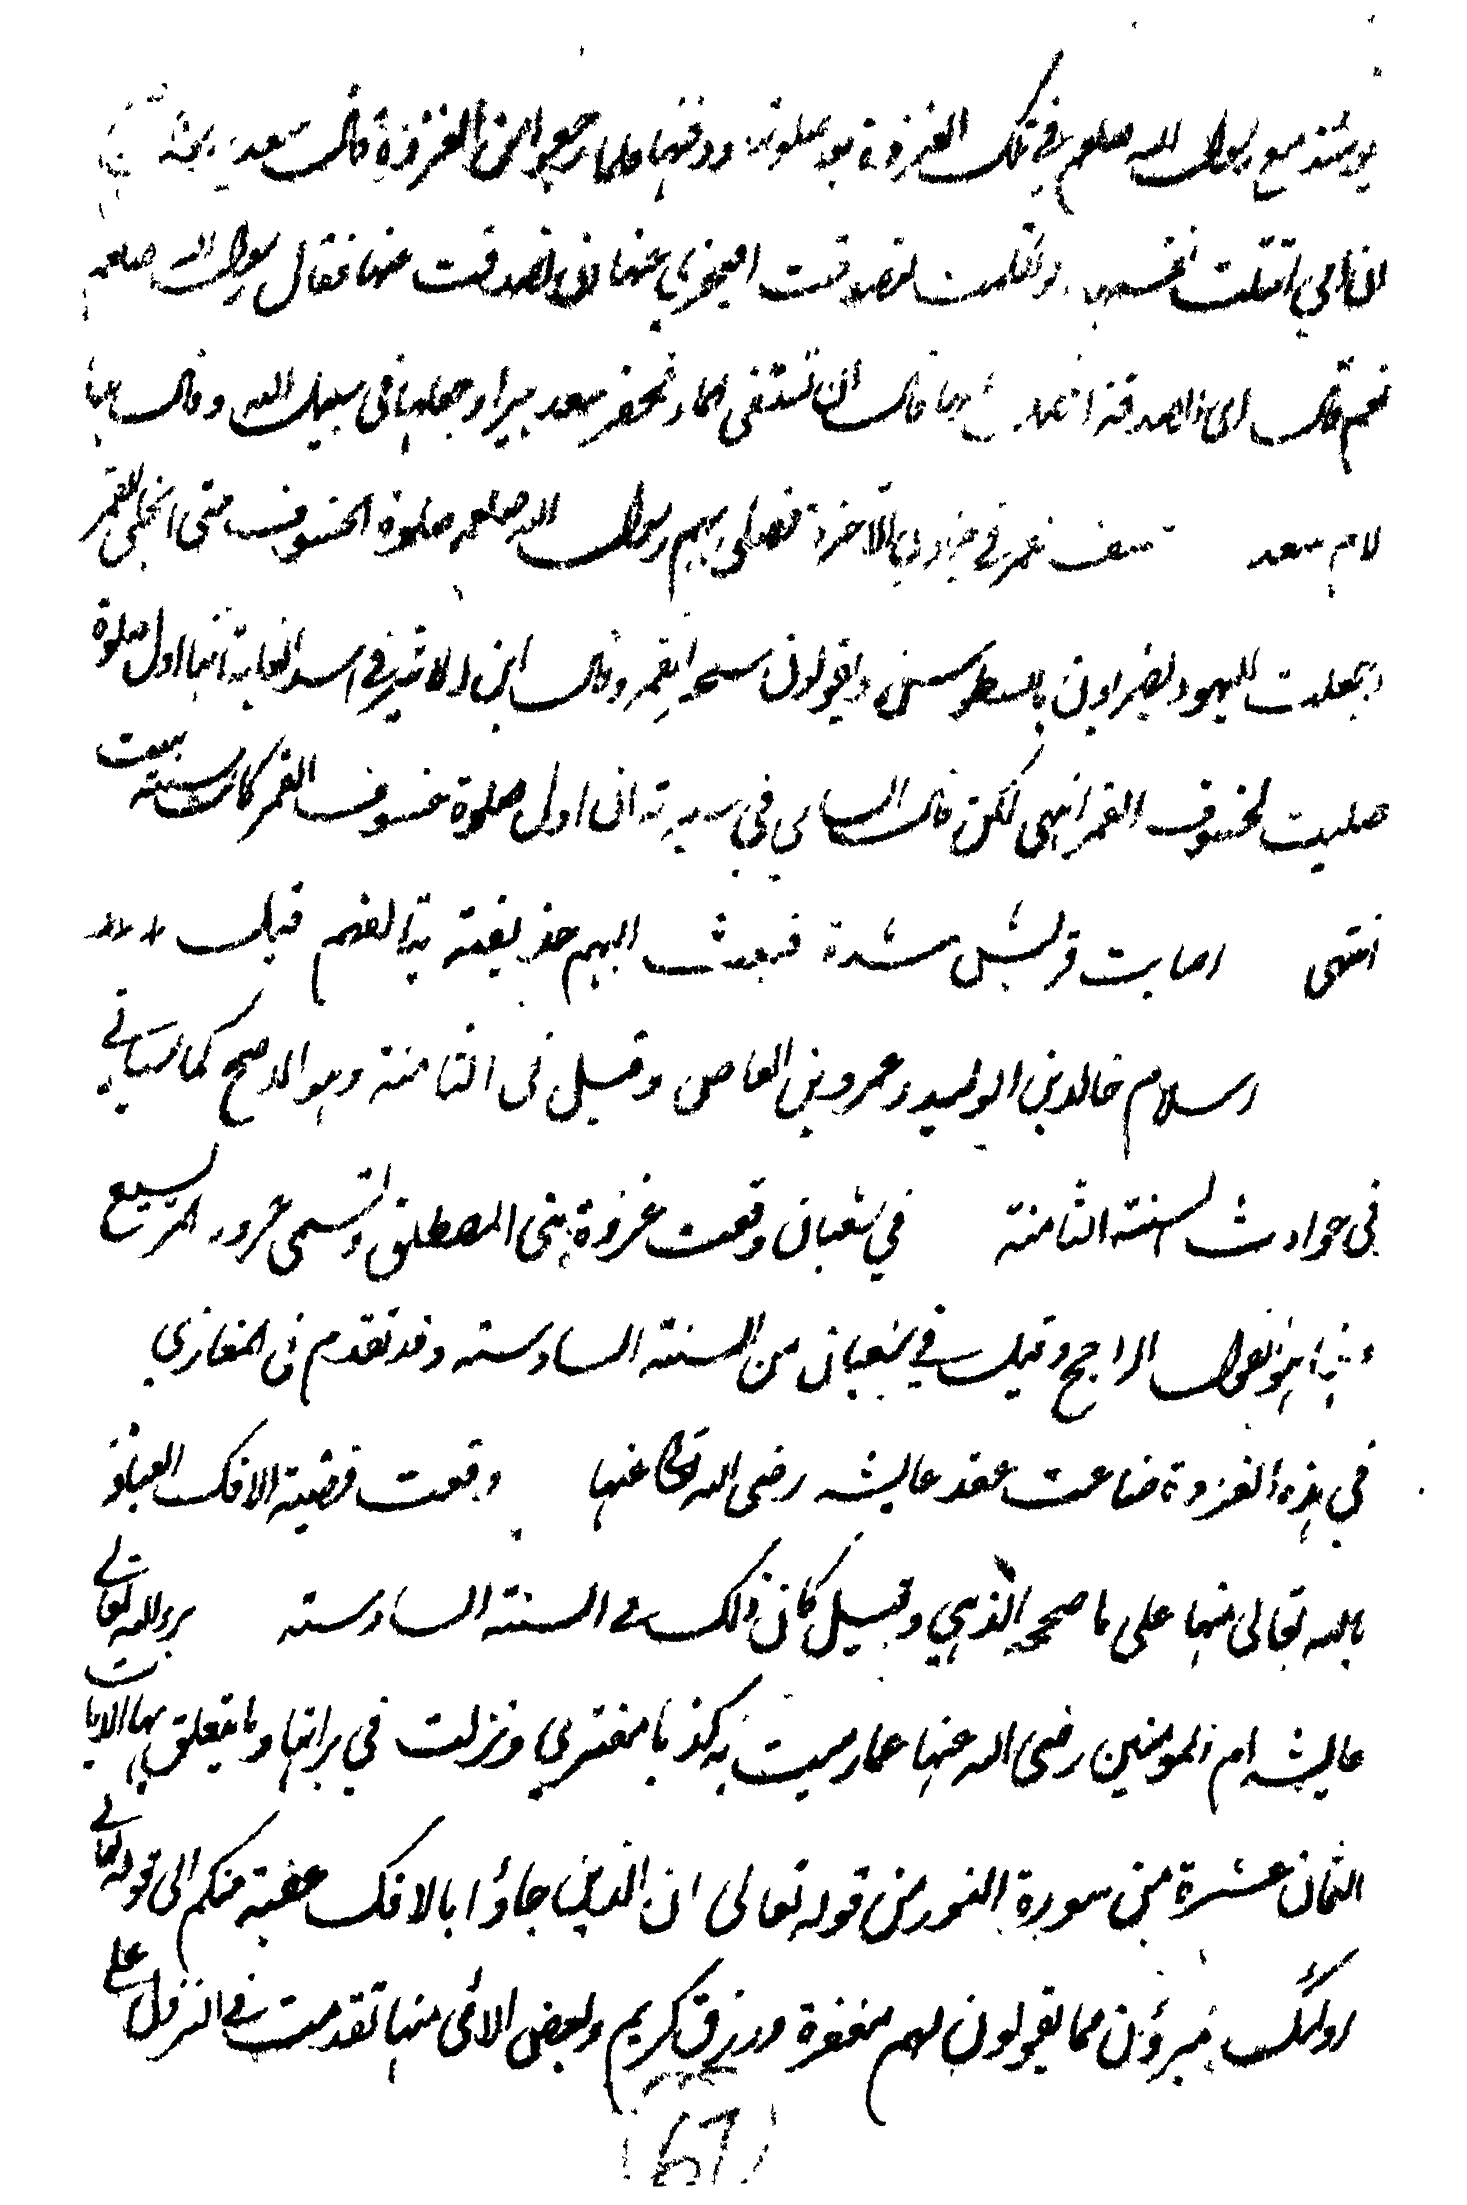 يومئذ مع رسول الله صلعم في تلك الغزوة بعد ودفنها فلما رجعوا من الغزوة قال سعد
ان امي افتلتت نفسها ولو تكلمت لتصدقت افيجزي عنها ان تصدقت عنها فقال رسول الله صلعم
نعم قال اي الصدقة قال ان تستقى الماء فحفر سعد بيرا وجعلها في سبيل الله وقال
لام سعد خسف قمر في جمادي الآخرة فصلى بهم رسول الله صلعم صلوة الخسوف حتى انجلى القمر
وجعلت اليهود يضربون بالسطوس ويقولون سحر القمر وقال ابن الاثير في اسد الغابة انها اول صلوة
صليت لخسوف القمر انتهى لكن قال الشامي في سيرته ان اول صلوة خسوف القمر كانت سنة ست
انتهى اصابت قريش شدة فبعث اليهم حذيفة يتالفهم قبل
اسلام خالد بن الوليد وعمرو بن العاص وقيل في الثامنة وهو الاصح كما سياتي
في حوادث السنة الثامنة في شعبان وقعت غزوة بني المصطلق وتسمى غزوة المريسيع
هذا هو القول الراجح وقيل في شعبان من السنة السادسة وقد تقدم في المغازي
في هذه الغزوة ضاعت عقد عايشه رضى الله تعالى عنها وقعت قضية الافك العياذ
بالله تعالى منها على ما صححه الذهبي وقيل كان ذلك في السنة السادسة برء الله تعالى
عايشه ام المومنين رضى الله عنها عما رميت به كذبا مفترى ونزلت في براتها وما يتعلق بها الايات
الثمان عشرة من سورة النور من قوله تعالى ان الذين جاؤا بالافك عصبة منكم الى قوله تعالى
اولئك مبرؤن مما يقولون لهم مغفرة ورزق كريم وبعض الائى منها تقدمت في النزول على
(67)